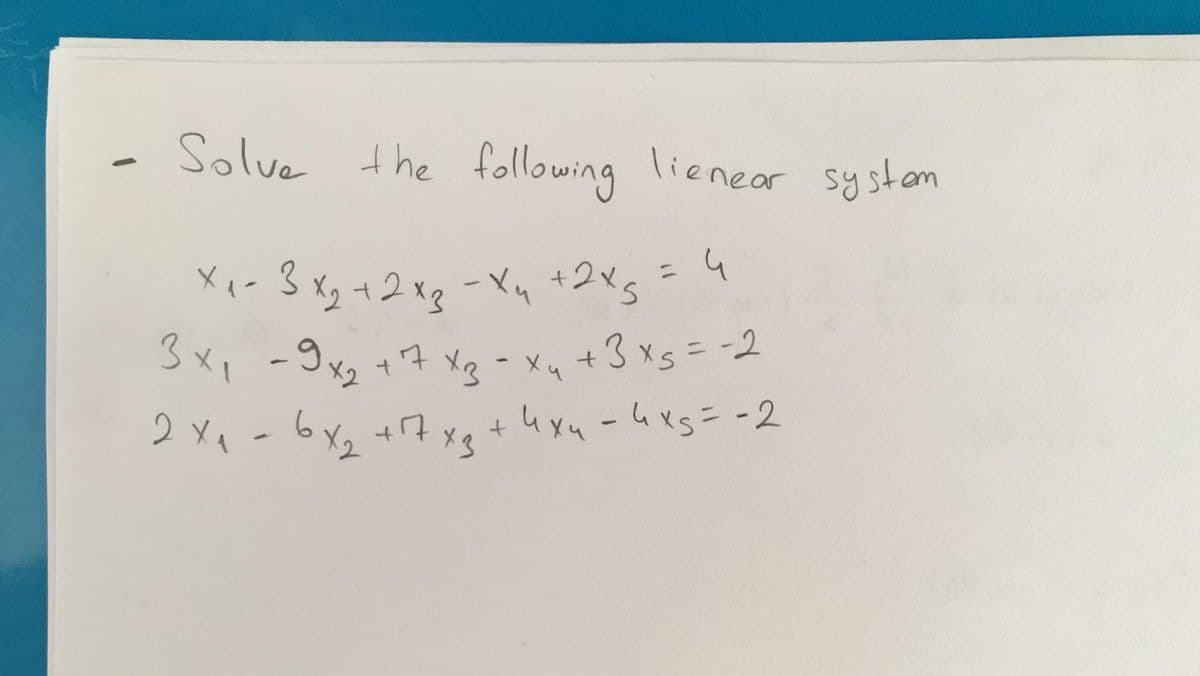 - Solve the following lienear system
x₁ - 3x₂ + 2x₃ - x₄ + 2x₅ = 4
3x₁ - 9x₂ + 7x₃ - x₄ + 3x₅ = -2
2x₁ - 6x₂ + 7x₃ + 4x₄ - 4x₅ = -2